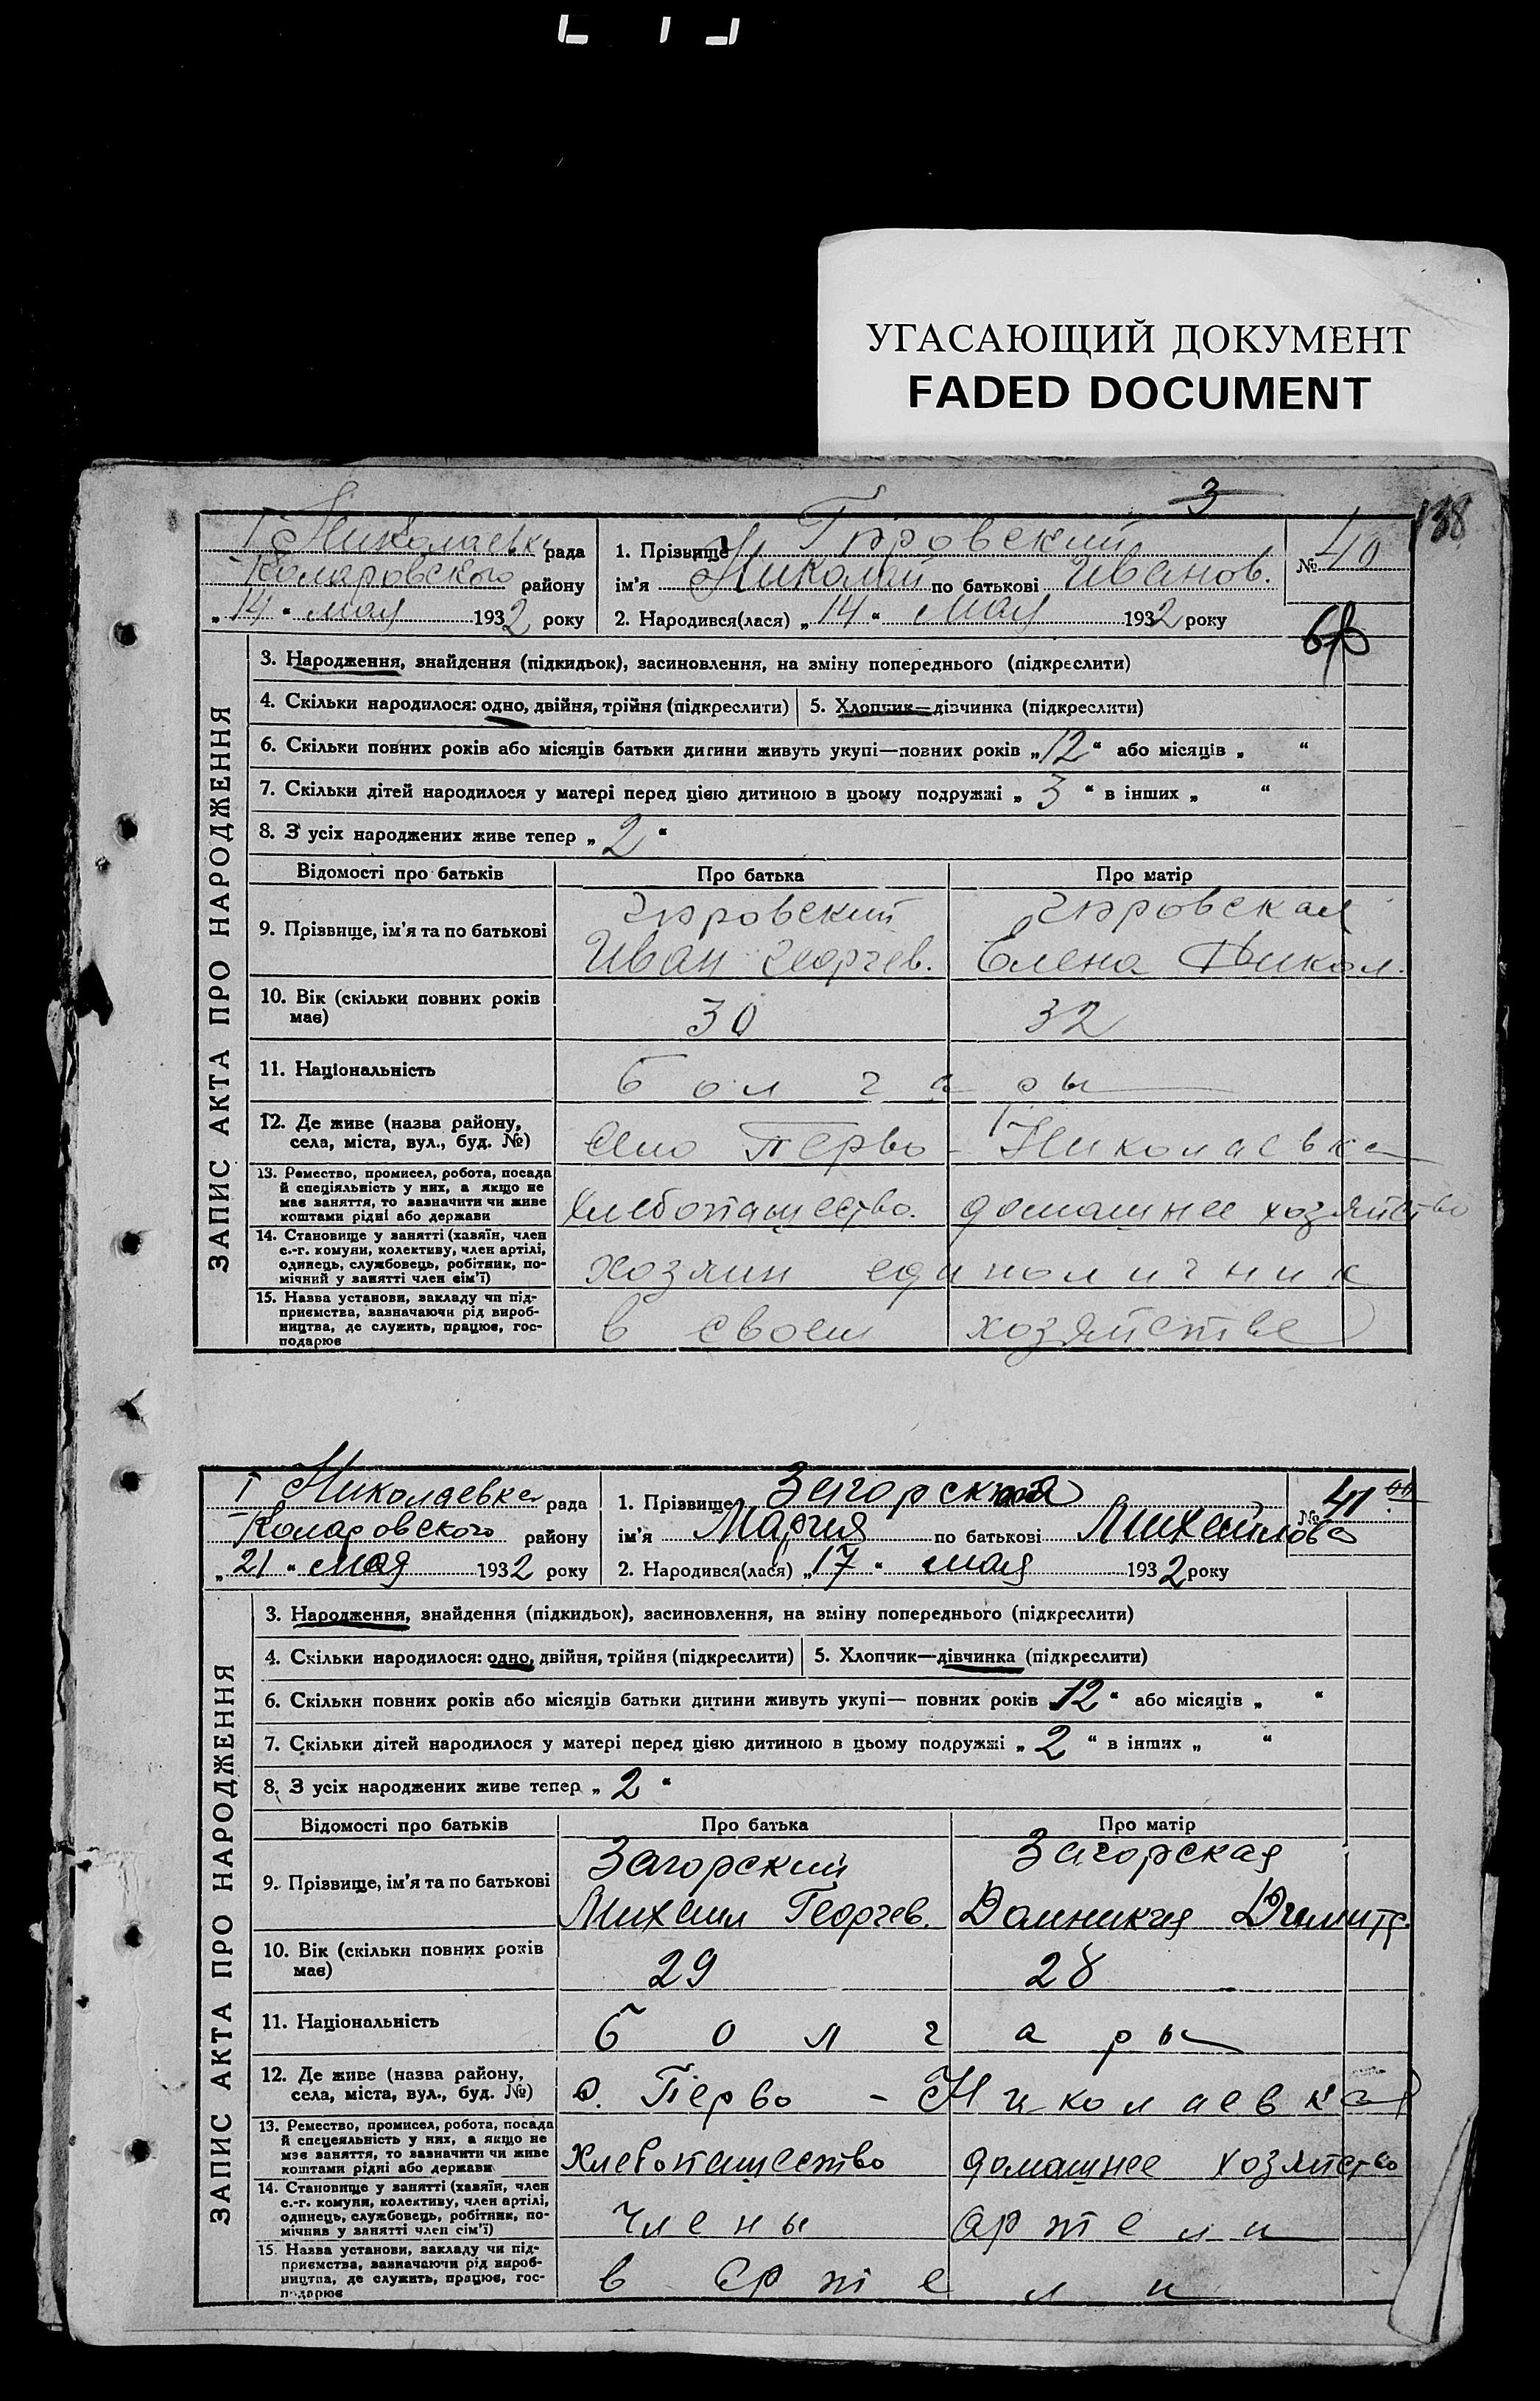 УГАСАЮЩИЙ ДОКУМЕНТ
FADED DOCUMENT
3
138
ЗАПИС АКТА ПРО НАРОДЖЕННЯ
I Николаевка рада
Комаровского району
„14“ мая 1932 року
1. Прізвище Гировский
ім'я Николай по батькові Иванов.
2. Народився(лася) „14“ мая 1932 року
№ 40
3. Народження, знайдення (підкидьок), засиновлення, на зміну попереднього (підкреслити)
4. Скільки народилося: одно, двійня, трійня (підкреслити) 5. Хлопчик—дівчинка (підкреслити)
6. Скільки повних років або місяців батьки дитини живуть укупі—повних років „12“ або місяців „ “
7. Скільки дітей народилося у матері перед цією дитиною в цьому подружжі „3“ в інших „ “
8. З усіх народжених живе тепер „2“
Відомості про батьків Про батька Про матір
9. Прізвище, ім'я та по батькові
Гировский
Иван Георгев.
Гировская
Елена Никол.
10. Вік (скільки повних років має) 30 32
11. Національність болгары
12. Де живе (назва району, села, міста, вул., буд. №) Село Перво-Николаевка
13. Ремество, промисел, робота, посада
й спеціяльність у них, а якщо не
має заняття, то зазначити чи живе
коштами рідні або держави
Хлебопашество. домашнее хозяйство
14. Становище у занятті (хазяїн, член
с.-г. комуни, колективу, член артілі,
одинець, службовець, робітник, по-
мічний у занятті член сім'ї)
хозяин единоличник
15. Назва установи, закладу чи під-
приємства, зазначаючи рід вироб-
ництва, де служить, працює, гос-
подарює
в своем хозяйстве
ЗАПИС АКТА ПРО НАРОДЖЕННЯ
I Николаевка рада
Комаровского району
„21“ мая 1932 року
1. Прізвище Загорская
ім'я Мария по батькові Михайлова
2. Народився(лася) „17“ мая 1932 року
№ 41
3. Народження, знайдення (підкидьок), засиновлення, на зміну попереднього (підкреслити)
4. Скільки народилося: одно, двійня, трійня (підкреслити) 5. Хлопчик—дівчинка (підкреслити)
6. Скільки повних років або місяців батьки дитини живуть укупі— повних років „12“ або місяців „ “
7. Скільки дітей народилося у матері перед цією дитиною в цьому подружжі „2“ в інших „ “
8. З усіх народжених живе тепер „2“
Відомості про батьків Про батька Про матір
9. Прізвище, ім'я та по батькові
Загорский
Михаил Георгев.
Загорская
Домникия Димитр.
10. Вік (скільки повних років має) 29 28
11. Національність болгары
12. Де живе (назва району, села, міста, вул., буд. №) с. Перво - Николаевка
13. Ремество, промисел, робота, посада
й спецеяльність у них, а якщо не
має заняття, то зазначити чи живе
коштами рідні або держави
Хлебопашество домашнее хозяйство
14. Становище у занятті (хазяїн, член
с.-г. комуни, колективу, член артілі,
одинець, службовець, робітник, по-
мічнив у занятті член сім'ї)
Члены артели
15. Назва установи, закладу чи під-
приємства, зазначаючи рід вироб-
ництва, де служить, працює, гос-
подарює
в артели